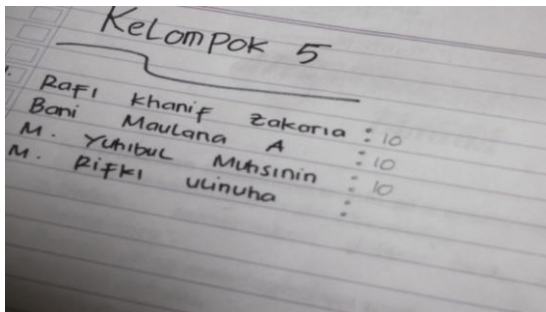 Kelompok 5
Rafi Khanif Zakaria : 10
Bani Maulana A : 10
M. Yuhibul Muhsinin : 10
M. Rifki Ulinuha :